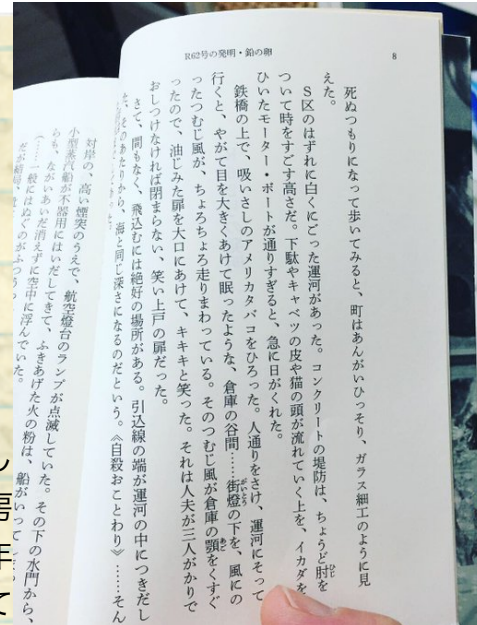 R62号の発明・鉛の卵
8
死ぬつもりになって歩いてみると、町はあんがいひっそり、ガラス細工のように見
えた。
S区のはずれに白くにごった運河があった。コンクリートの堤防は、ちょうど肘を
ついて時をすごす高さだ。下駄やキャベツの皮や猫の頭が流れていく上を、イカダを
ひいたモーター・ボートが通りすぎると、急に日がくれた。
鉄橋の上で、吸いさしのアメリカタバコをひろった。人通りをさけ、運河にそって
行くと、やがて目を大きくあけて眠ったような、倉庫の谷間……街燈の下を、風にの
ったつむじ風が、ちょろちょろ走りまわっている。そのつむじ風が倉庫の顎をくすぐ
ったので、油じみた扉を大口にあけて、キキキと笑った。それは人夫が三人がかりで
おしつけなければ閉まらない、笑い上戸の扉だった。
さて、間もなく、飛込むには絶好の場所がある。引込線の端が運河の中につきだし
た、そのあたりから、海と同じ深さになるのだという。《自殺おことわり》……そん
対岸の、高い煙突のうえで、航空燈台のランプが点滅していた。その下の水門から、
小型蒸汽船が不器用にはいだしてきて、ふきあげた火の粉は、船がいって
らも、ながいあいだ消えずに空中に浮んでいた。
(……一般にはぬぐのがふつう
だが結局